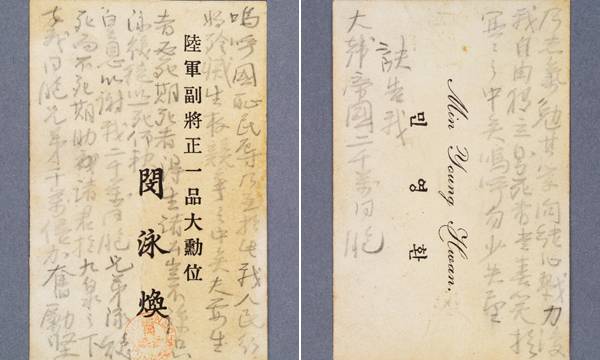 嗚呼國恥民辱乃至於此我人民行
將殄滅生存競爭之中矣夫要生
陸軍副將正一品大勳位
者必死期死者得生諸公豈不諒只
閔泳煥
泳煥徒以一死仰報
皇恩以謝我二千萬同胞兄弟泳煥
死而不死期助我諸君於九泉之下
幸我同胞兄弟千萬億加奮勵堅
乃志氣勉其學問結心戮力復
我自由獨立即死者當喜笑於
冥冥之中矣嗚呼勿少失望
Min Young Hwan.
민영환
訣告我
大韓帝國二千萬同胞